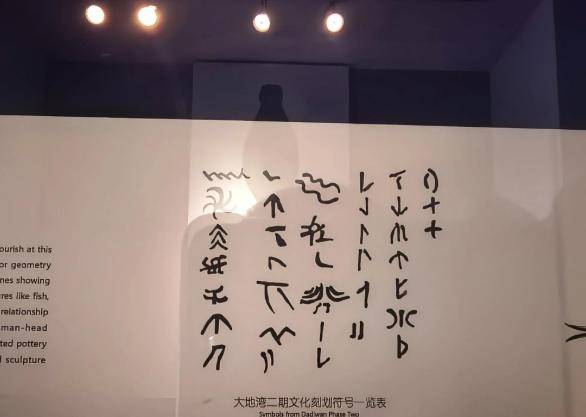 ourish at this
or geometry
nes showing
res like fish,
relationship
man-head
ted pottery
sculpture
大地湾二期文化刻划符号一览表
Symbols from Dadiwan Phase Two